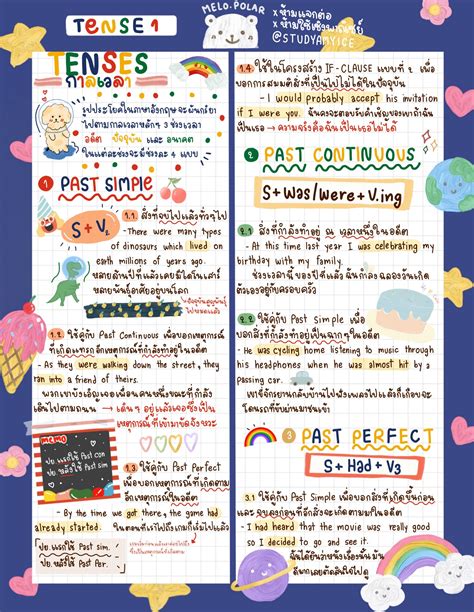 TENSE 1
MELO.POLAR
x ห้ามแจกต่อ
x ห้ามใช้เชิงพาณิชย์
@STUDYAMYICE
TENSES
กาลเวลา
รูปประโยคในภาษาอังกฤษจะผันกริยา
ไปตามกาลเวลาหลักๆ 3 ช่วงเวลา
อดีต ปัจจุบัน และ อนาคต
ในแต่ละช่วงจะมีช่วงละ 4 แบบ
1 PAST SIMPLE
S + V2
1.1. สิ่งที่จบไปแล้วทั่วๆไป
- There were many types
of dinosaurs which lived on
earth millions of years ago.
หลายล้านปีที่แล้วเคยมีไดโนเสาร์
หลายพันธุ์อาศัยอยู่บนโลก
1.2. ใช้คู่กับ Past Continuous เพื่อบอกเหตุการณ์
ที่เกิดแทรกอีกเหตุการณ์ที่กำลังทำอยู่ในอดีต
- As they were walking down the street, they
ran into a friend of theirs.
พวกเขาบังเอิญเจอเพื่อนคนหนึ่งขณะที่กำลัง
เดินไปตามถนน → เดินๆ อยู่แล้วเจอซึ่งเป็น
เหตุการณ์ที่เข้ามาขัดจังหวะ
memo
ปย.แรกใช้ Past con
ปย.หลังใช้ Past sim
1.3. ใช้คู่กับ Past Perfect
เพื่อบอกเหตุการณ์ที่เกิดตาม
อีกเหตุการณ์ในอดีต
- By the time we got there, the game had
already started.
ปย.แรกใช้ Past Sim.
ปย.หลังใช้ Past Per.
1.4. ใช้ในโครงสร้าง IF-CLAUSE แบบที่ 2 เพื่อ
บอกการสมมติสิ่งที่เป็นไปไม่ได้ในปัจจุบัน
- I would probably accept his invitation
if I were you. ฉันคงจะตอบรับคำเชิญของเขาถ้าฉัน
เป็นเธอ → ความจริงคือฉันเป็นเธอไม่ได้
2 PAST CONTINUOUS
S + Was/Were + V.ing
2.1 สิ่งที่กำลังทำอยู่ ณ เวลาหนึ่งในอดีต
- At this time last year I was celebrating my
birthday with my family.
ช่วงเวลานี้ของปีที่แล้ว ฉันกำลังฉลองวันเกิด
ตัวเองอยู่กับครอบครัว
2.2 ใช้คู่กับ Past Simple เพื่อ
บอกสิ่งที่กำลังทำอยู่เป็นฉากๆในอดีต
- He was cycling home listening to music through
his headphones when he was almost hit by a
passing car.
3 PAST PERFECT
S + Had + V3
3.1 ใช้คู่กับ Past Simple เพื่อบอกสิ่งที่เกิดขึ้นก่อน
และจบลงก่อนอีกสิ่งที่เกิดตามมาในอดีต
- I had heard that the movie was really good
so I decided to go and see it.
ฉันได้ยินว่าหนังเรื่องนั้นมัน
ดีมากเลยตัดสินใจไปดู